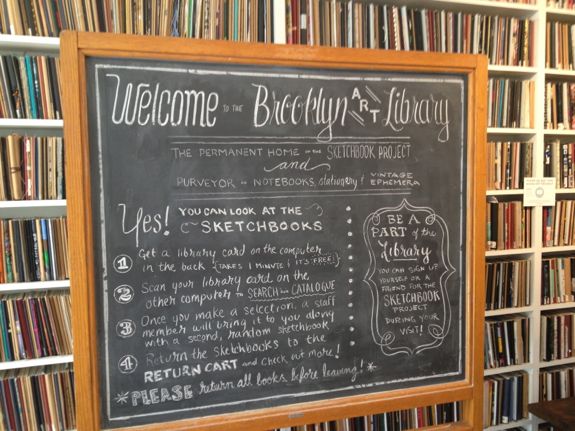 Welcome TO THE Brooklyn ART Library
THE PERMANENT HOME OF THE SKETCHBOOK PROJECT
and
PURVEYOR OF NOTEBOOKS, stationery & VINTAGE EPHEMERA
Yes! YOU CAN LOOK AT THE
SKETCHBOOKS
1 Get a library card on the computer
in the back {TAKES 1 MINUTE & IT'S FREE!}
2 Scan your library card on the
other computer to SEARCH the CATALOGUE
3 Once you make a selection, a staff
member will bring it to you along
with a second, random sketchbook
4 Return the sketchbooks to the
RETURN CART and check out more!
*PLEASE return all books before leaving!*
BE A
PART of the
Library
YOU CAN SIGN UP
YOURSELF OR A
FRIEND FOR THE
SKETCHBOOK
PROJECT
DURING YOUR
VISIT!